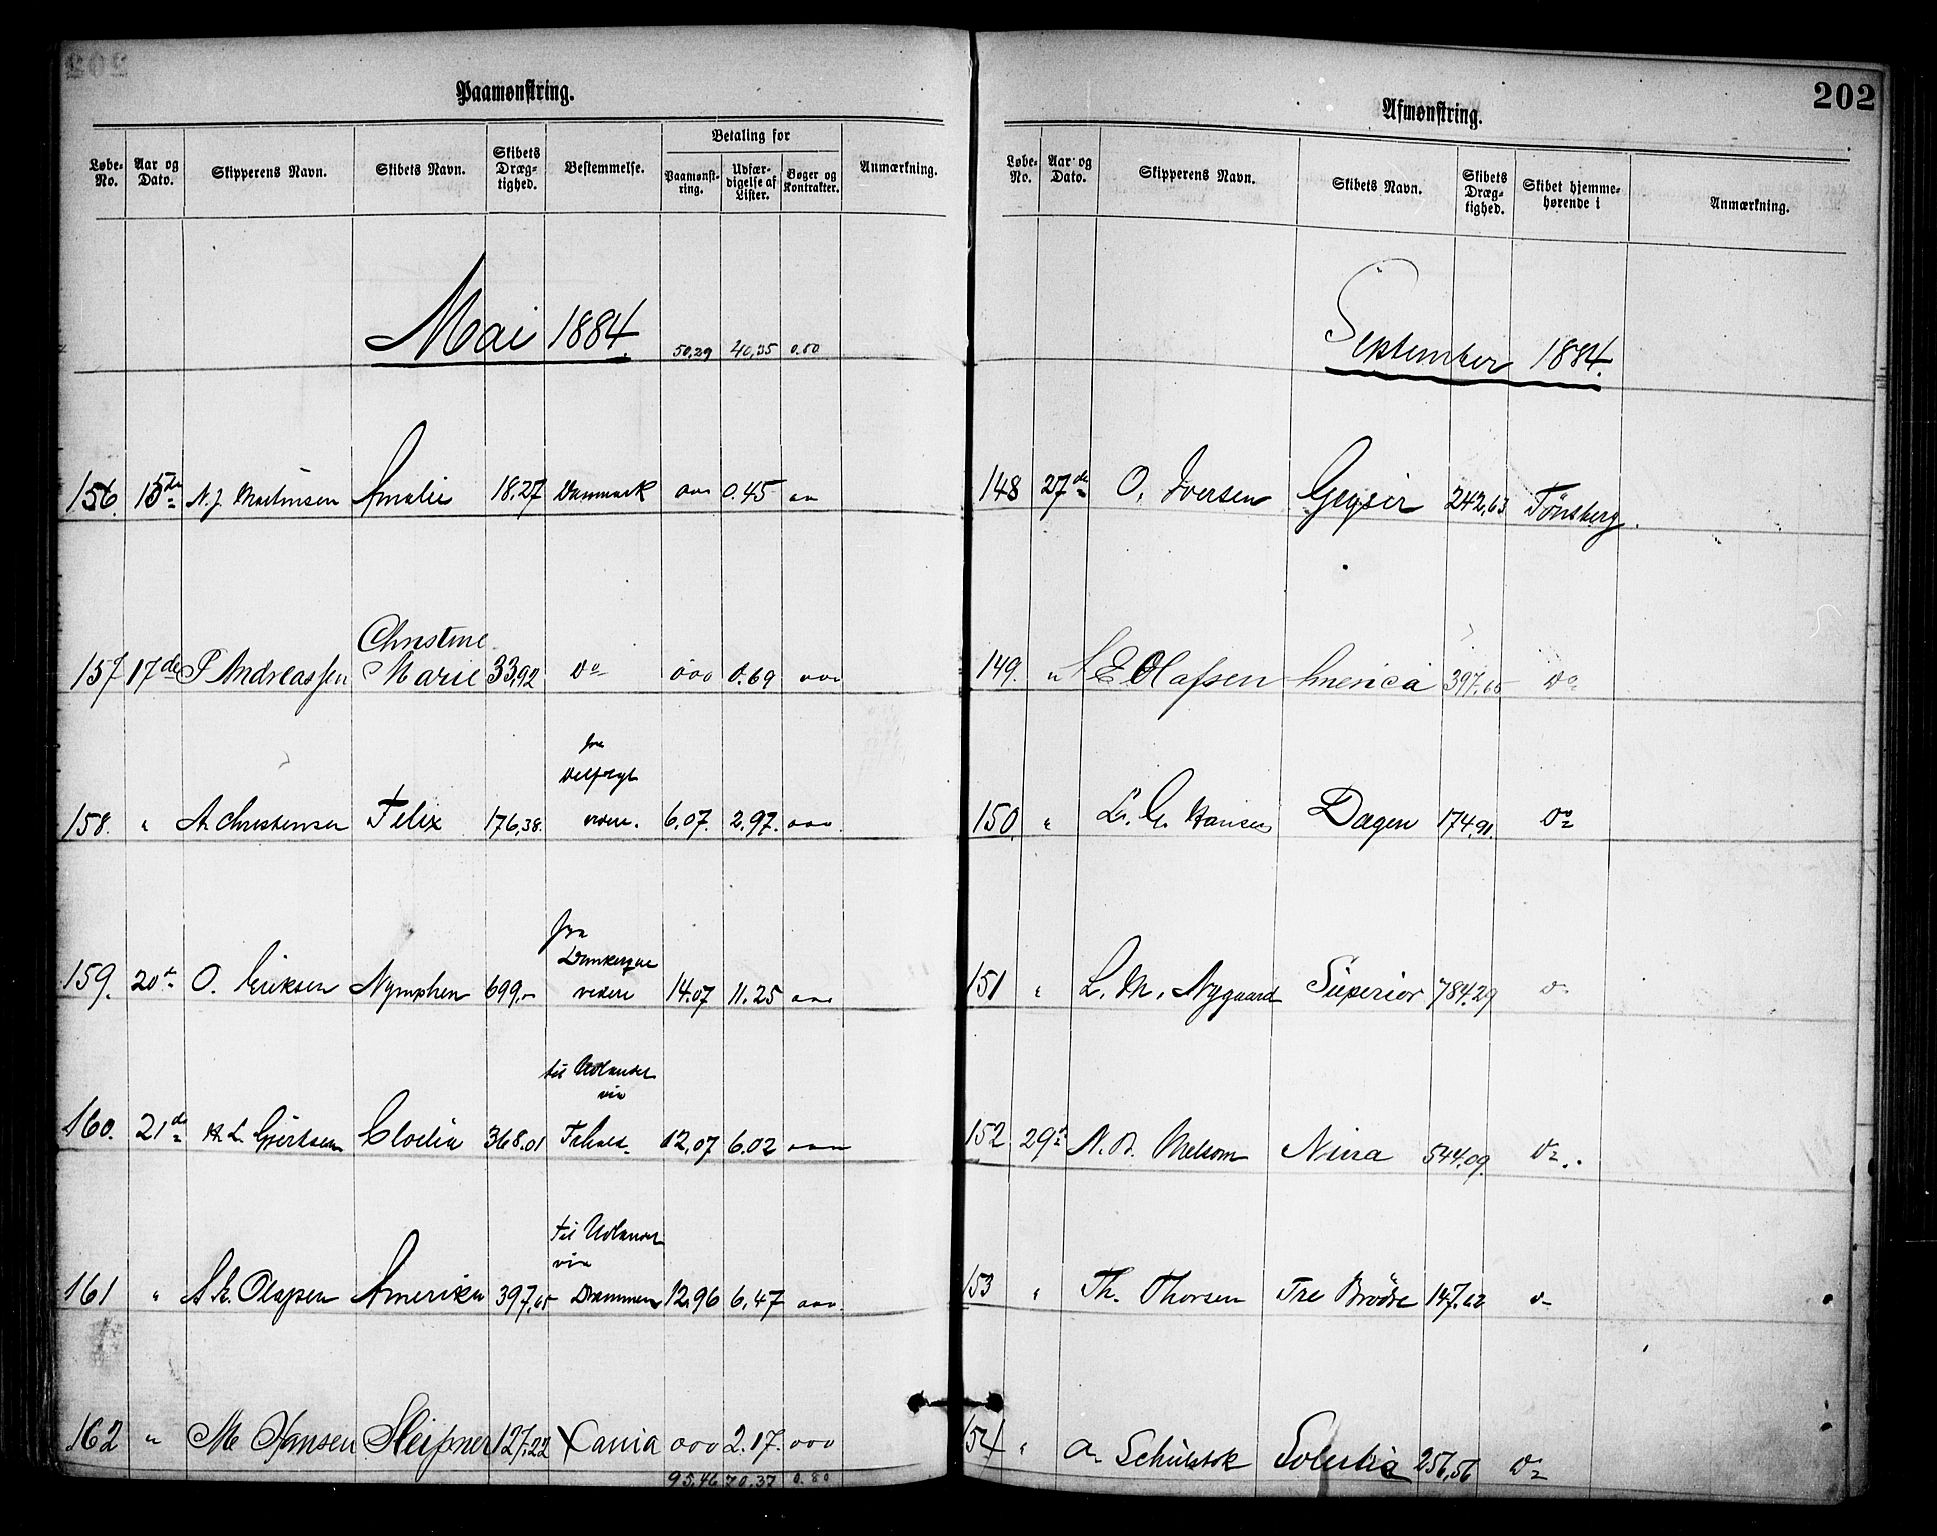 Paamønstring.
Løbe-No. Aar og Dato. Skipperens Navn. Skibets Navn. Skibets Dræg-tighed. Bestemmelse. Betaling for Paamønst-ring. Udfær-digelse af Lister. Bøger og Kontrakter. Anmærkning.
Mai 1884. 50,29 40,35 0.80
156. 15de N. J. Martinsen Amalie 18.27 Danmark ooo 0.45 oo
Christine
157 17de P Andreassen Marie 33,92 do ooo 0.69 ooo
fra
Delfzyl
158. " A Christensen Felix 176,38. videre. 6.07. 2.97. ooo
fra
Dunkerque
159. 20de O. Eriksen Nymphen 699,- videre 14.07 11.25 ooo
til Udlandet
via
160. 21de H. L. Gjertsen Clodia 368.01 12,07 6.02 ooo
til Udlandet
via
161 " A E. Olafsen Amerika 397,65 Drammen 12,96 6,47 ooo
162 " M Hansen Sleipner 127.22 ooo 2.17. ooo
95,46 70,37 0.80
202
Afmønstring.
Løbe-No. Aar og Dato. Skipperens Navn. Skibets Navn. Skibets Dræg-tighed. Skibet hjemme-hørende i Anmærkning.
September 1884.
148 27de O. Iversen Geysir 242,63 Tönsberg.
149. " A E Olafsen America 397.65 do
150. " G. Hansen Dagen 174,91. do
151 " L. M. Nygaard Superior 784.29 do
152 29de N. B. Melsom Nina 544,09. do
153 " Th. Thorsen Tre Brödre 147,62 do
154 " A. 256,56 do